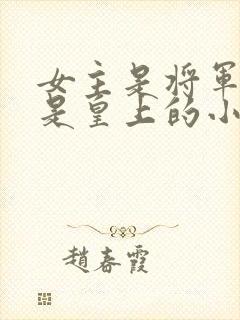 女主是将軍
是皇上的小
趙春霞